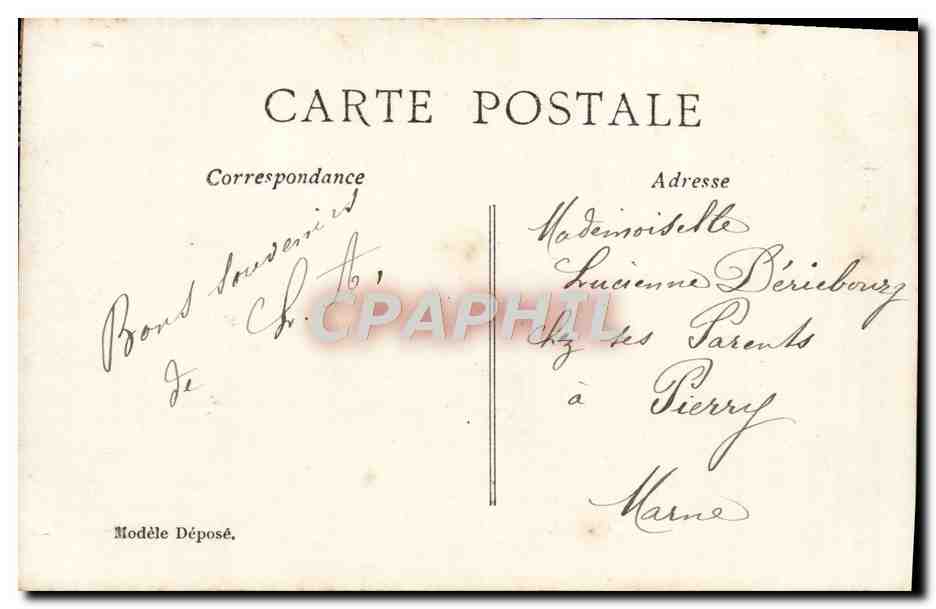 CARTE POSTALE
Correspondance
Bons souvenirs
de L. A.
Adresse
Mademoiselle
Lucienne Dériebourg
chez ses Parents
à Pierry
Marne
Modèle Déposé.
CPAPHIL